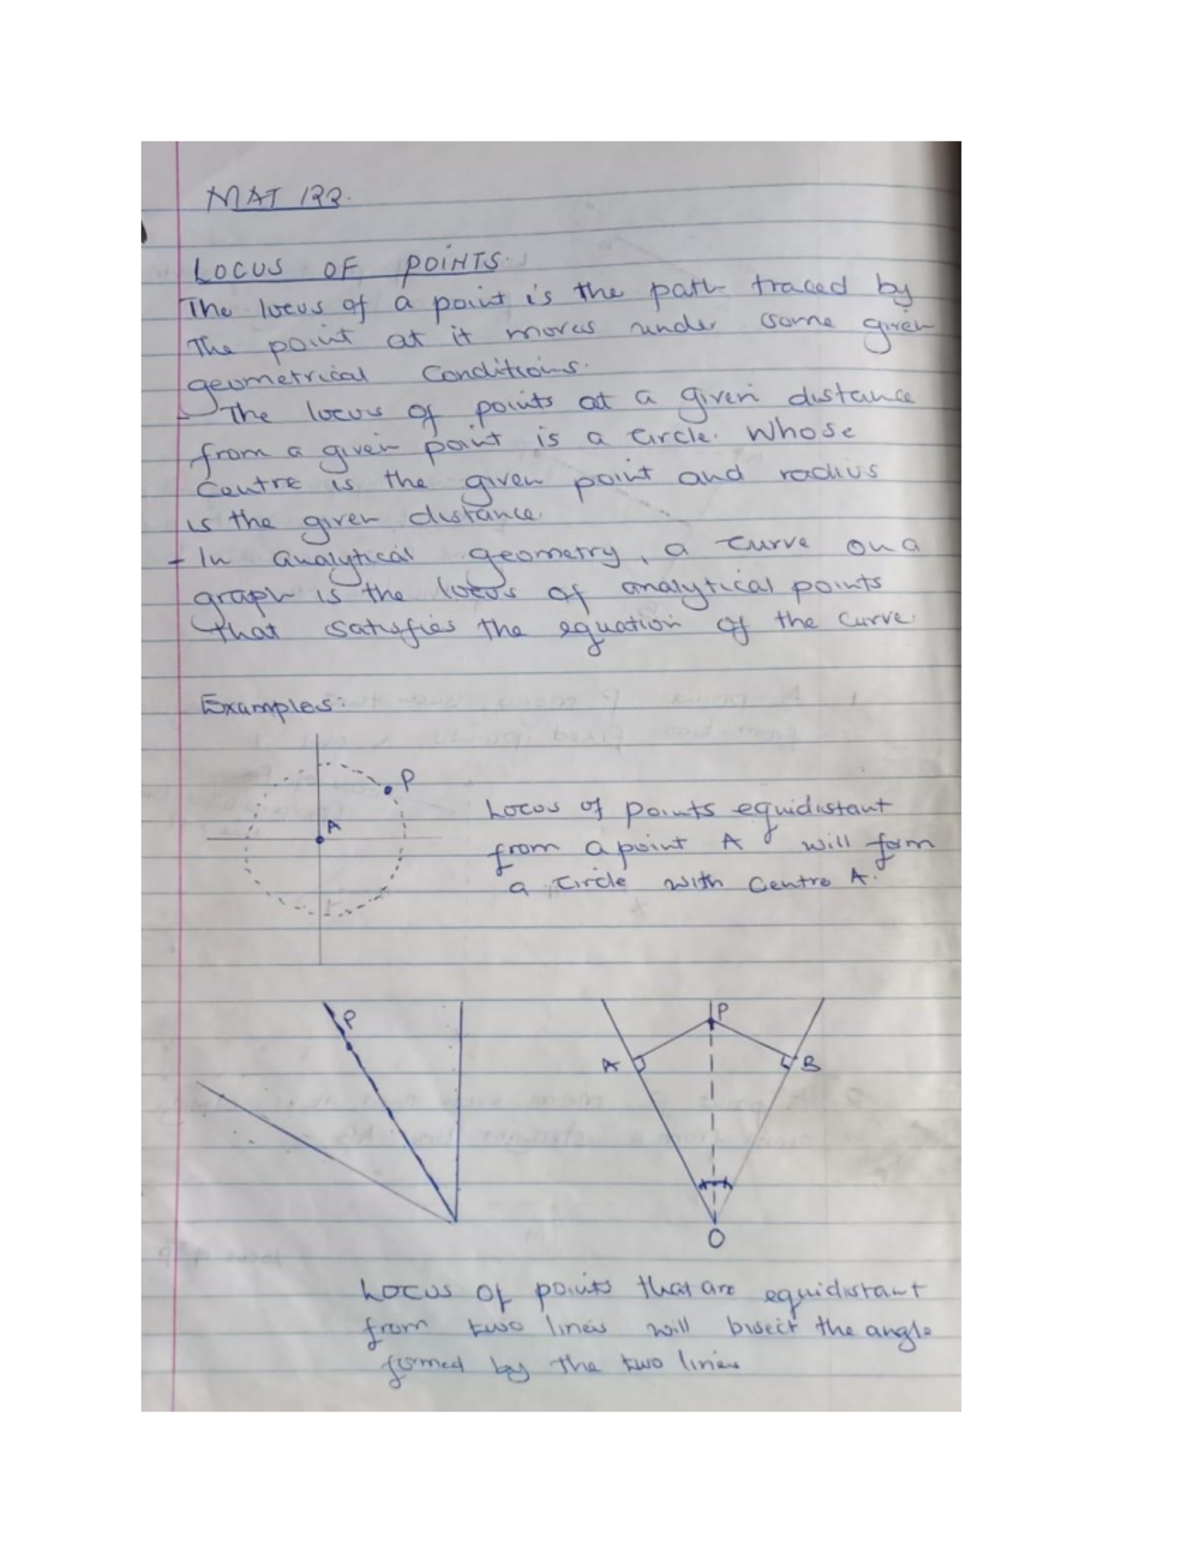 MAT 122.
LOCUS OF POINTS.
The locus of a point is the path traced by
The point at it moves under some given
geometrical Conditions.
- The locus of points at a given distance
from a given point is a circle. Whose
Centre is the given point and radius
is the given distance.
- In analytical geometry, a curve on a
graph is the locus of analytical points
that satisfies the equation of the curve.
Examples:
P
A
Locus of points equidistant
from a point A will form
a circle with Centre A.
P
P
A
B
O
Locus of points that are equidistant
from two lines will bisect the angle
formed by the two lines